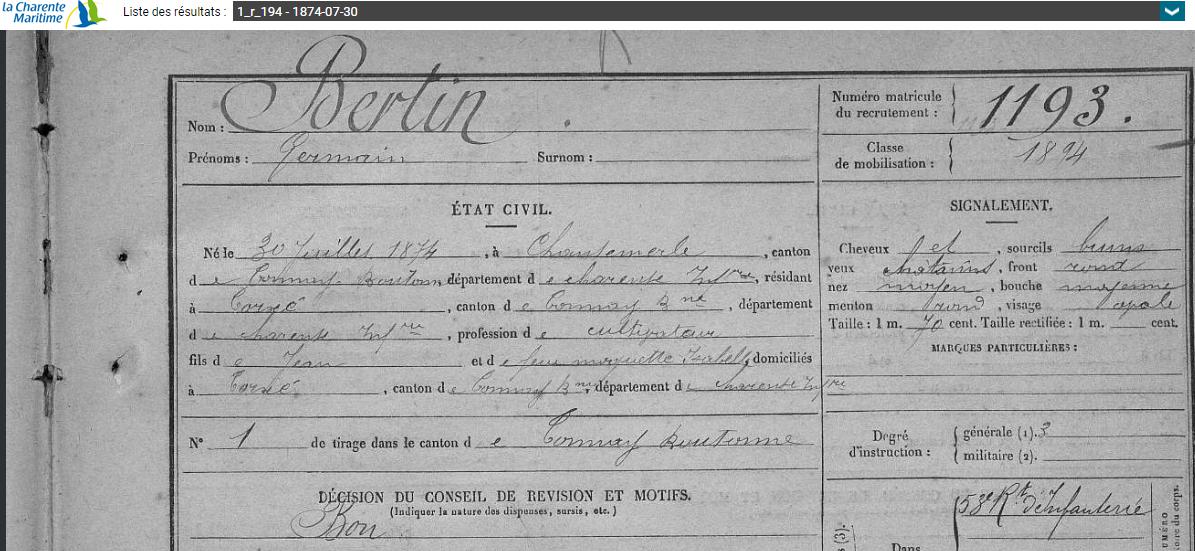 la Charente
Maritime
Liste des résultats : 1_r_194 - 1874-07-30
Nom : Bertin
Prénoms : Germain Surnom :
Numéro matricule du recrutement : 1193.
Classe de mobilisation : 1894
ÉTAT CIVIL.
Né le 30 Juillet 1874, à Chantemerle, canton
de Tonnay-Boutonne département de charente Infre, résidant
à Torxé, canton de Tonnay Bne, département
de charente Infre, profession de cultivateur
fils de Jean et de feue Isabelle, domiciliés
à Torxé, canton de Tonnay Bne, département de charente Infre
N° 1 de tirage dans le canton de Tonnay Boutonne
DÉCISION DU CONSEIL DE REVISION ET MOTIFS.
(Indiquer la nature des dispenses, sursis, etc.)
Bon
SIGNALEMENT.
Cheveux et, sourcils bruns
yeux chatains, front rond
nez moyen, bouche moyenne
menton rond, visage
Taille : 1 m. 70 cent. Taille rectifiée : 1 m. cent.
MARQUES PARTICULIÈRES :
Degré d'instruction : générale (1). 3
militaire (2).
58e Rt d'Infanterie
Dans
(3).
UMÉRO
oire du corps.